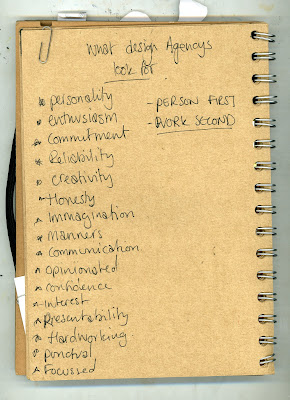 What design Agencys
look for
personality
enthusiasm
Commitment
Reliability
creativity
Honesty
Immagination
Manners
Communication
Opinionated
Confidence
Interest
Presentability
Hardworking
Ponctual
Focussed
- PERSON FIRST
- WORK SECOND